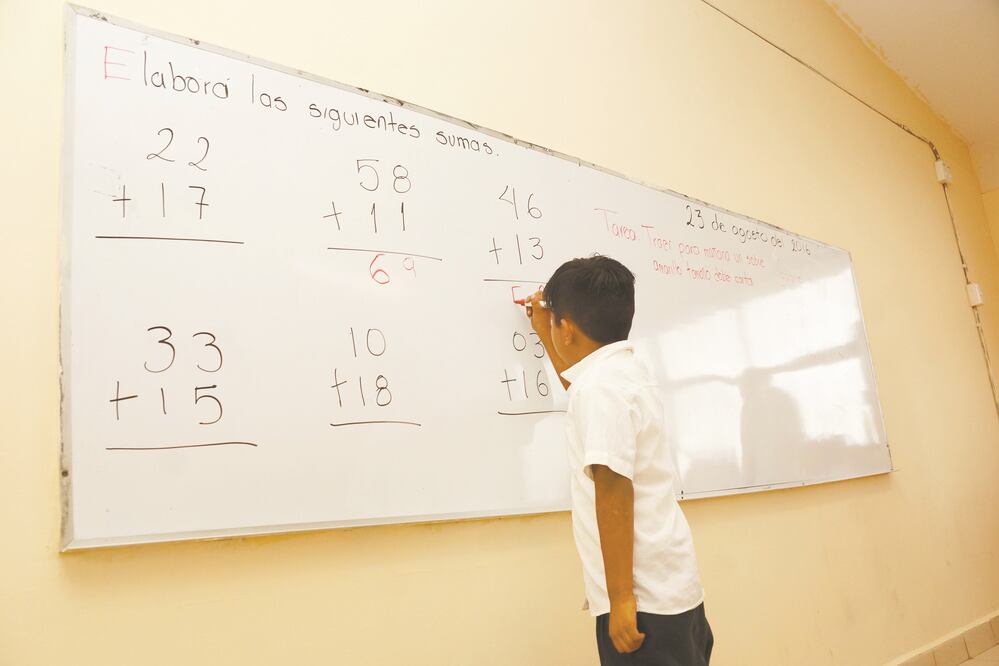 Elabora las siguientes sumas.
22
+ 17
58
+ 11
69
46
+ 13
33
+ 15
10
+ 18
03
+ 16
23 de agosto del 2016
Tarea. Traer para mañana un sobre
amarillo tamaño